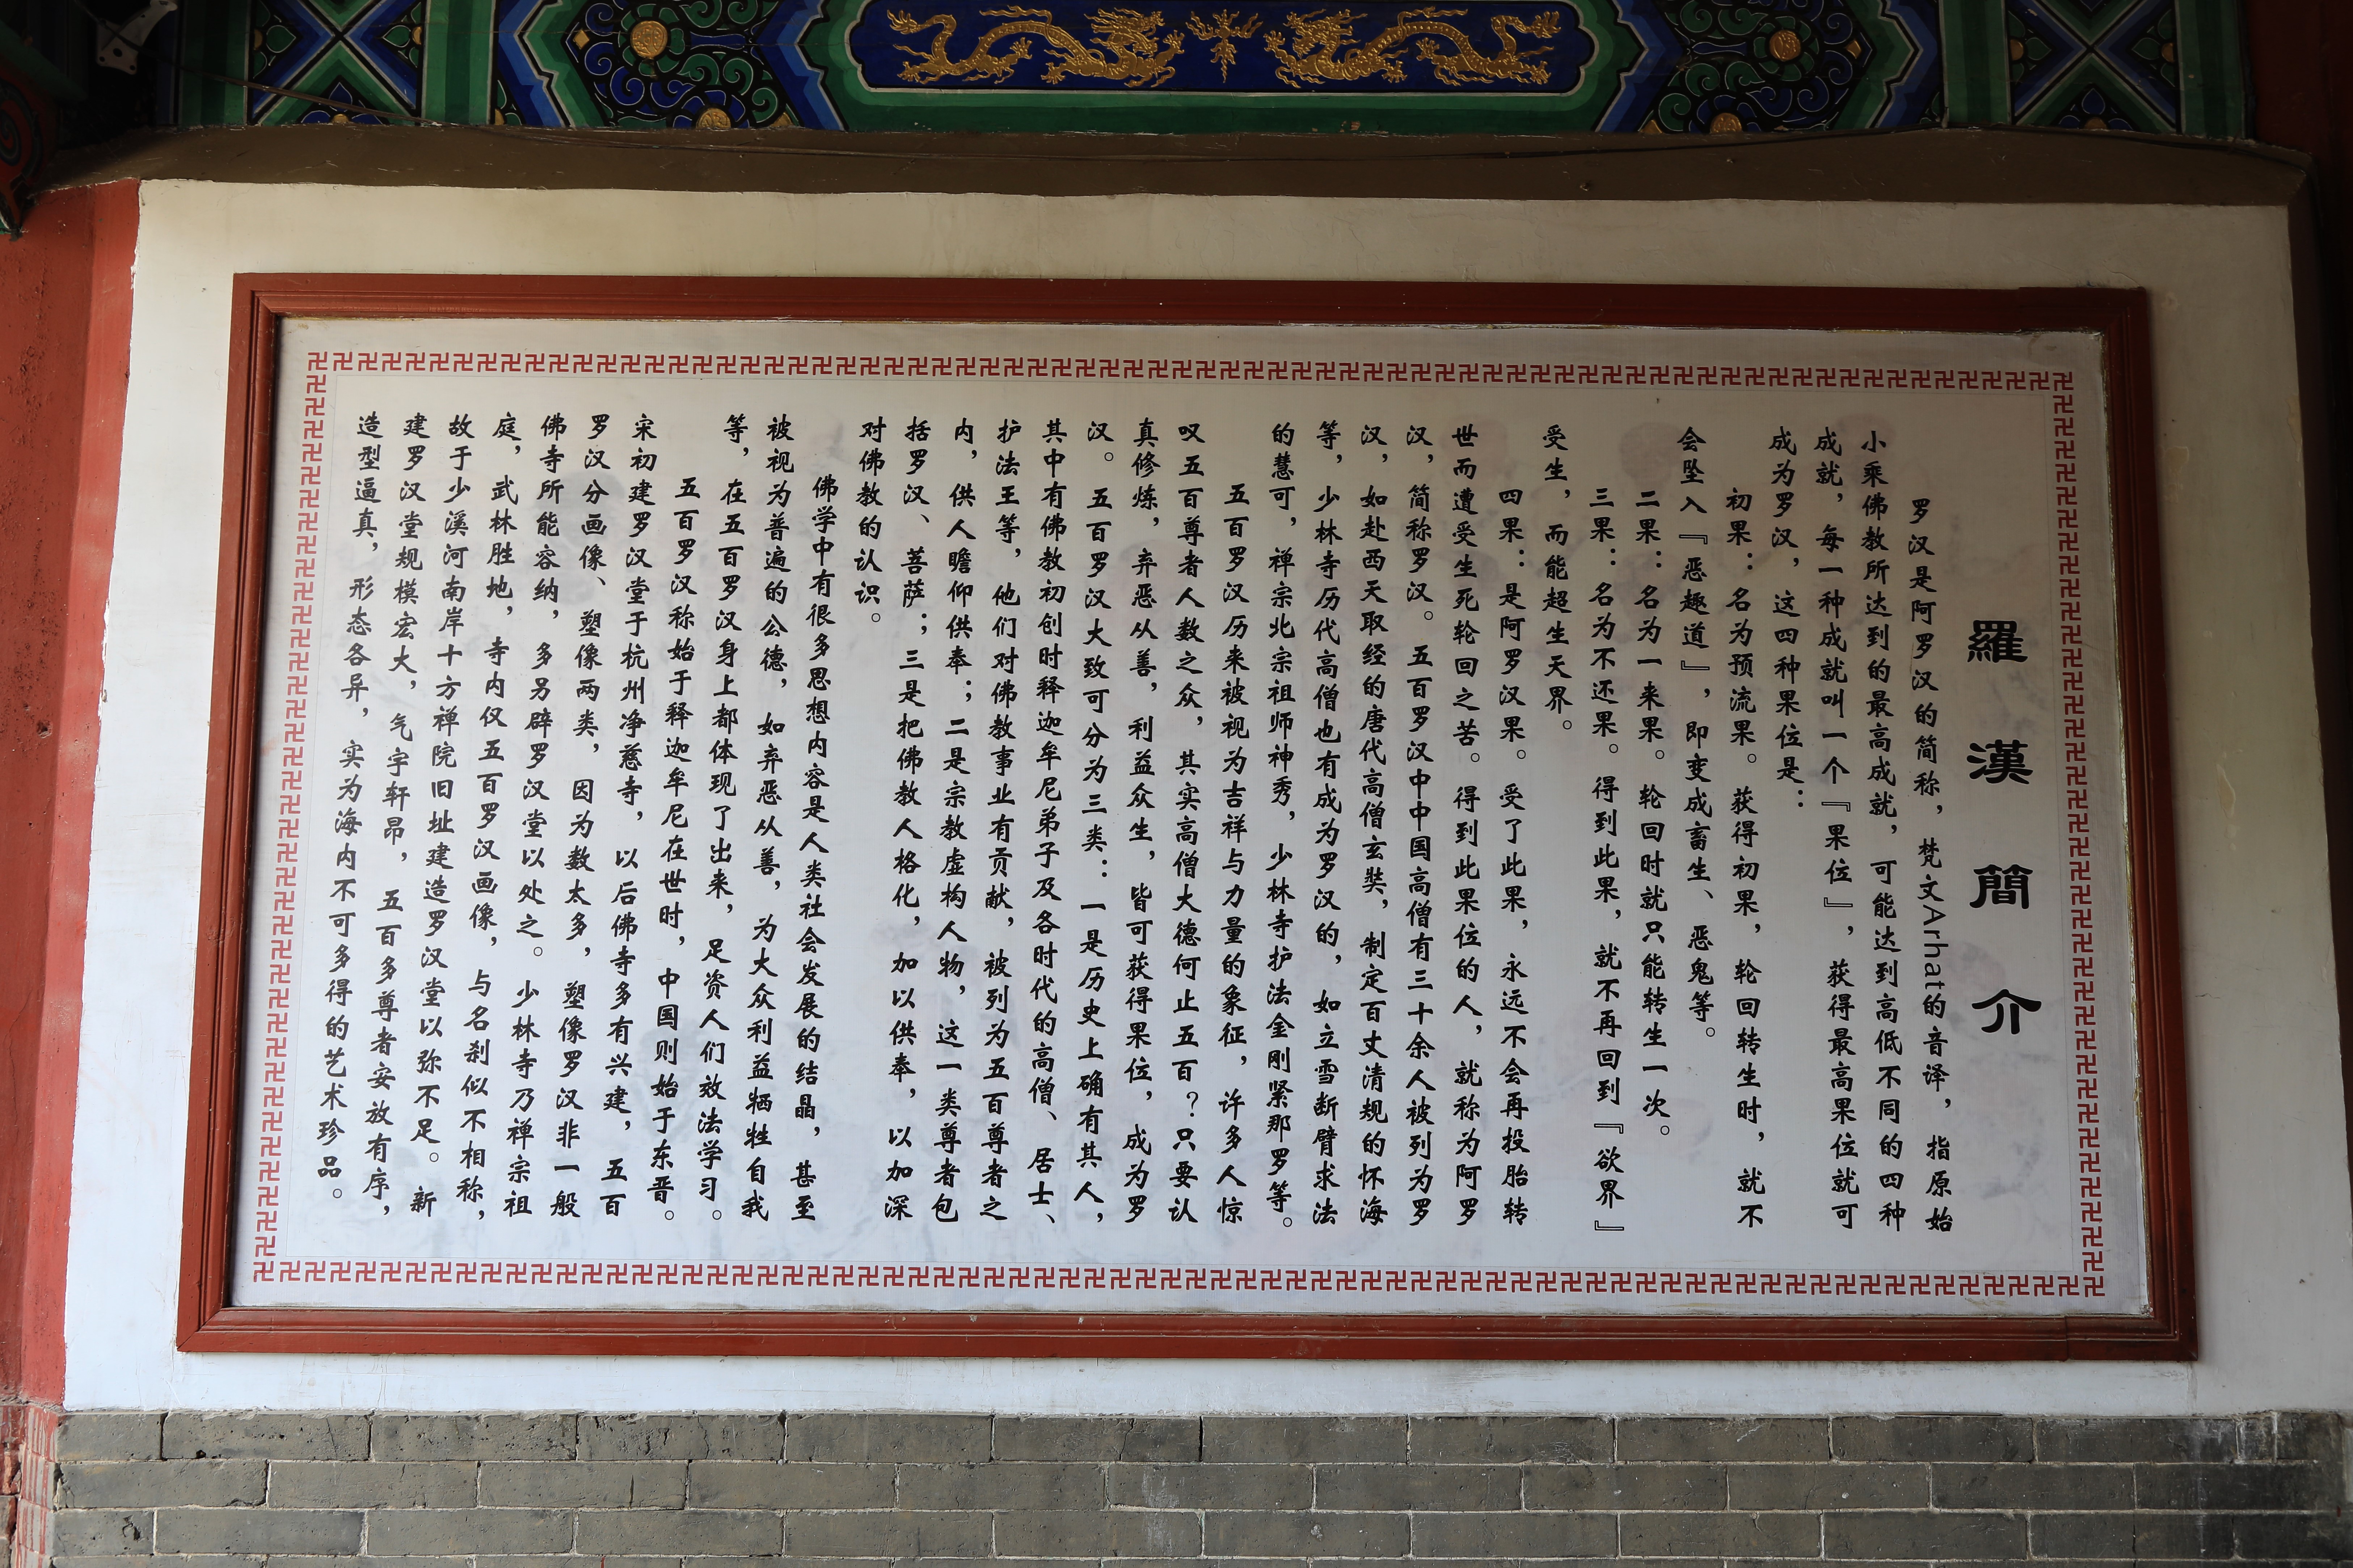 羅漢簡介
罗汉是阿罗汉的简称，梵文Arhat的音译，指原始
小乘佛教所达到的最高成就，可能达到高低不同的四种
成就，每一种成就叫一个『果位』，获得最高果位就可
成为罗汉，这四种果位是：
初果：名为预流果。获得初果，轮回转生时，就不
会坠入『恶趣道』，即变成畜生、恶鬼等。
二果：名为一来果。轮回时就只能转生一次。
三果：名为不还果。得到此果，就不再回到『欲界』
受生，而能超生天界。
四果：是阿罗汉果。受了此果，永远不会再投胎转
世而遭受生死轮回之苦。得到此果位的人，就称为阿罗
汉，简称罗汉。五百罗汉中中国高僧有三十余人被列为罗
汉，如赴西天取经的唐代高僧玄奘，制定百丈清规的怀海
等，少林寺历代高僧也有成为罗汉的，如立雪断臂求法
的慧可，禅宗北宗祖师神秀，少林寺护法金刚紧那罗等。
五百罗汉历来被视为吉祥与力量的象征，许多人惊
叹五百尊者人数之众，其实高僧大德何止五百？只要认
真修炼，弃恶从善，利益众生，皆可获得果位，成为罗
汉。五百罗汉大致可分为三类：一是历史上确有其人，
其中有佛教初创时释迦牟尼弟子及各时代的高僧、居士、
护法王等，他们对佛教事业有贡献，被列为五百尊者之
内，供人瞻仰供奉；二是宗教虚构人物，这一类尊者包
括罗汉、菩萨；三是把佛教人格化，加以供奉，以加深
对佛教的认识。
佛学中有很多思想内容是人类社会发展的结晶，甚至
被视为普遍的公德，如弃恶从善，为大众利益牺牲自我
等，在五百罗汉身上都体现了出来，足资人们效法学习。
五百罗汉称始于释迦牟尼在世时，中国则始于东晋。
宋初建罗汉堂于杭州净慈寺，以后佛寺多有兴建，五百
罗汉分画像、塑像两类，因为数太多，塑像罗汉非一般
佛寺所能容纳，多另辟罗汉堂以处之。少林寺乃禅宗祖
庭，武林胜地，寺内仅五百罗汉画像，与名刹似不相称，
故于少溪河南岸十方禅院旧址建造罗汉堂以弥不足。新
建罗汉堂规模宏大，气宇轩昂，五百多尊者安放有序，
造型逼真，形态各异，实为海内不可多得的艺术珍品。